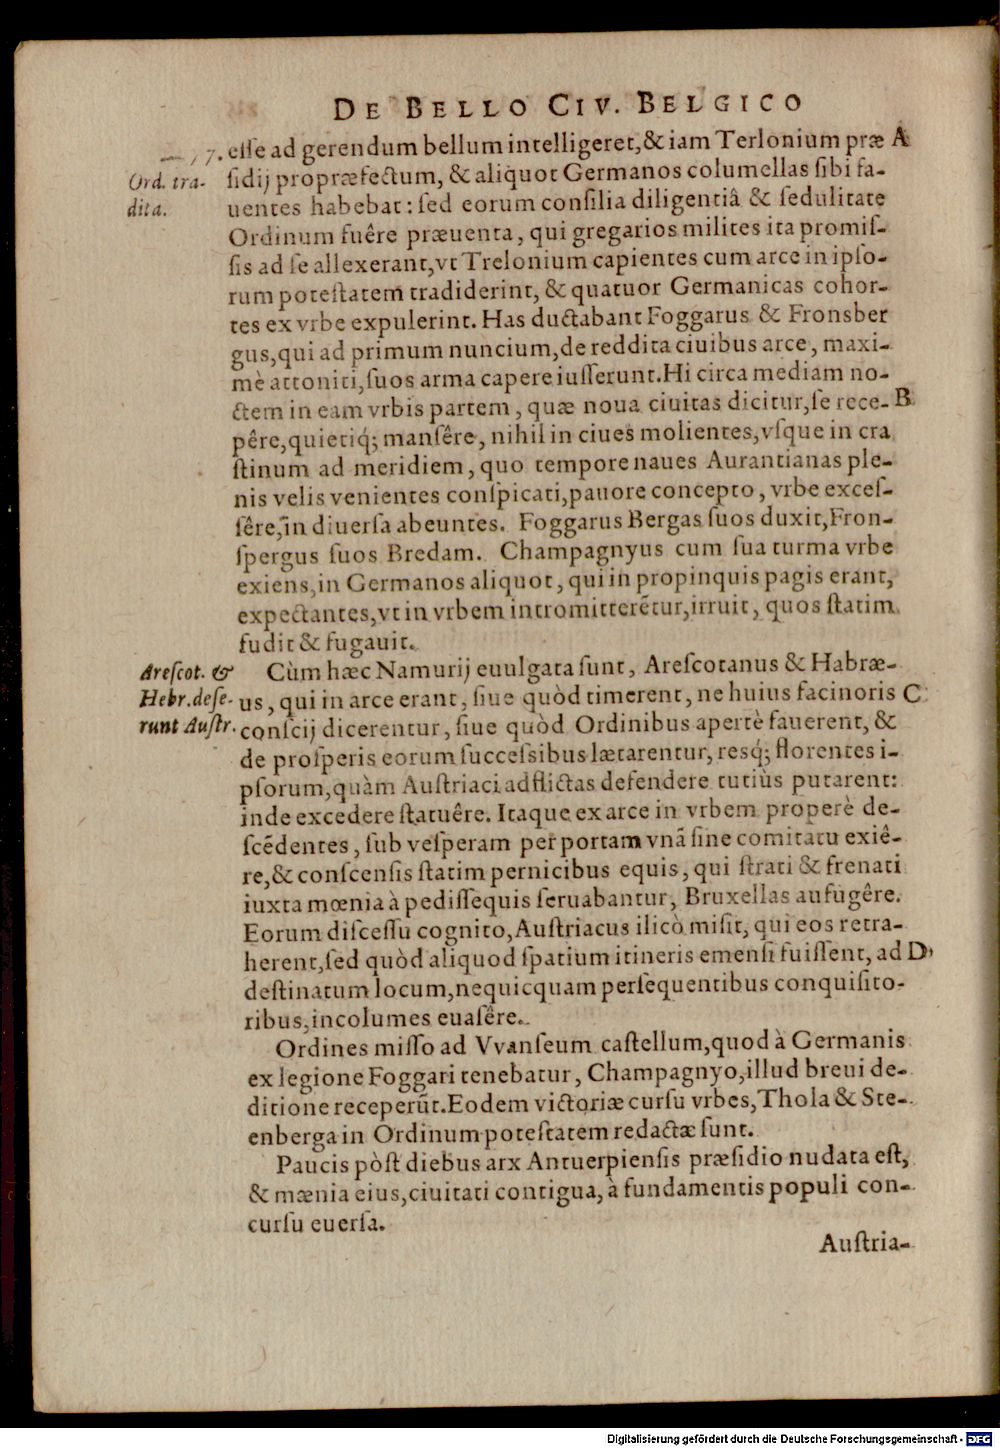 DE BELLO CIV. BELGICO
eſſe ad gerendum bellum intelligeret,& iam Terlonium præ A
ſidij propræfectum, & aliquot Germanos columellas ſibi fa-
uentes habebat: ſed eorum conſilia diligentiâ & ſedulitate
Ordinum fuêre præuenta, qui gregarios milites ita promiſ-
ſis ad ſe allexerant,vt Trelonium capientes cum arce in ipſo-
rum poteſtatem tradiderint, & quatuor Germanicas cohor-
tes ex vrbe expulerint. Has ductabant Foggarus & Fronsber
gus,qui ad primum nuncium,de reddita ciuibus arce, maxi-
mè attoniti,ſuos arma capere iuſſerunt.Hi circa mediam no-
ctem in eam vrbis partem, quæ noua ciuitas dicitur,ſe rece- B
pêre,quietiq́; manſêre, nihil in ciues molientes,vſque in cra
ſtinum ad meridiem, quo tempore naues Aurantianas ple-
nis velis venientes conſpicati,pauore concepto, vrbe exceſ-
ſêre,in diuerſa abeuntes. Foggarus Bergas ſuos duxit,Fron-
ſpergus ſuos Bredam. Champagnyus cum ſua turma vrbe
exiens,in Germanos aliquot, qui in propinquis pagis erant,
expectantes,vt in vrbem intromitterẽtur,irruit, quos ſtatim
fudit & fugauit.
Cùm hæc Namurij euulgata ſunt, Areſcotanus & Habræ-
us, qui in arce erant, ſiue quòd timerent, ne huius facinoris C
conſcij dicerentur, ſiue quòd Ordinibus apertè fauerent, &
de proſperis eorum ſucceſsibus lætarentur, resq́; florentes i-
pſorum,quàm Auſtriaci adflictas defendere tutiùs putarent:
inde excedere ſtatuêre. Itaque ex arce in vrbem properè de-
ſcẽdentes, ſub veſperam per portam vnã ſine comitatu exiê-
re,& conſcenſis ſtatim pernicibus equis, qui ſtrati & frenati
iuxta mœnia à pediſſequis ſeruabantur, Bruxellas aufugêre.
Eorum diſceſſu cognito,Auſtriacus ilicò miſit, qui eos retra-
herent,ſed quòd aliquod ſpatium itineris emenſi fuiſſent, ad D
deſtinatum locum,nequicquam perſequentibus conquiſito-
ribus,incolumes euaſêre.
Ordines miſſo ad Vvanſeum caſtellum,quod à Germanis
ex legione Foggari tenebatur, Champagnyo,illud breui de-
ditione receperũt.Eodem victoriæ curſu vrbes,Thola & Ste-
enberga in Ordinum poteſtatem redactæ ſunt.
Paucis pòſt diebus arx Antuerpienſis præſidio nudata eſt,
& mænia eius,ciuitati contigua, à fundamentis populi con-
curſu euerſa.
Auſtria-
Ord. tra-
dita.
Areſcot. &
Hebr. deſe-
runt Auſtr.
Digitalisierung gefördert durch die Deutsche Forschungsgemeinschaft - DFG